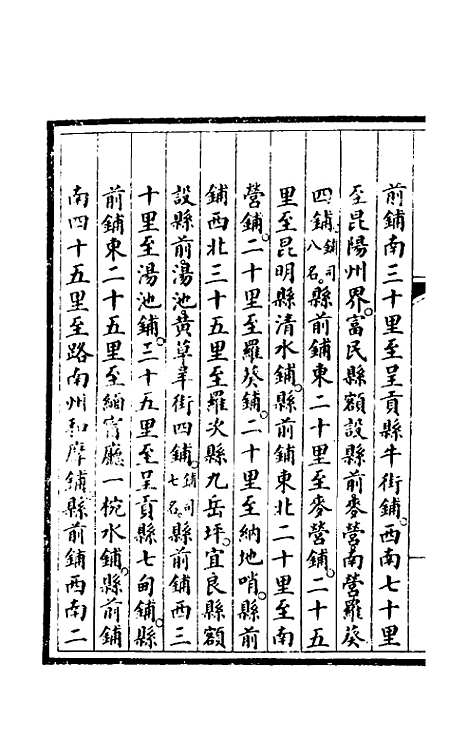 前鋪南三十里至呈貢縣牛街鋪西南七十里
至昆陽州界。富民縣額設縣前麥營南營羅葵
四鋪。鋪司八名。縣前鋪東二十里至麥營鋪。二十五
里至昆明縣清水鋪。縣前鋪東北二十里至南
營鋪。二十里至羅葵鋪。二十里至納地哨。縣前
鋪西北三十五里至羅次縣九岳坪。宜良縣額
設縣前湯池黃草羊街四鋪。鋪司七名。縣前鋪西三
十里至湯池鋪。三十五里至呈貢縣七甸鋪。縣
前鋪東二十五里至緬甯廳一椀水鋪。縣前鋪
南四十五里至路南州和摩鋪。縣前鋪西南二